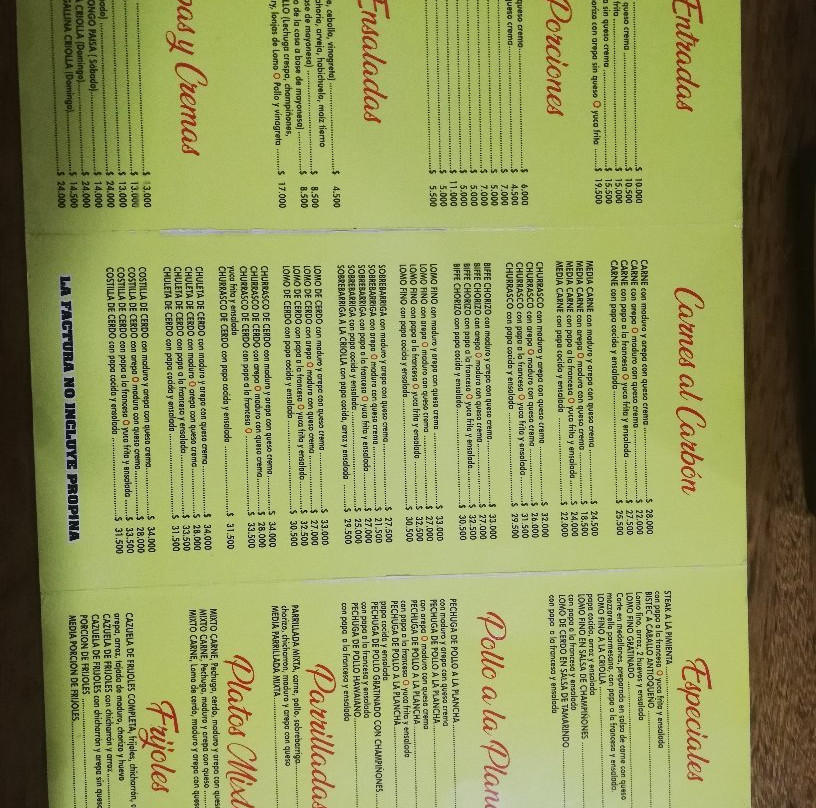 Entradas
queso crema $ 10.000
queso crema $ 10.500
frita $ 15.000
a sin queso crema $ 15.500
chorizo con arepa sin queso O yuca frita $ 19.500
Porciones
queso crema $ 6.000
queso crema $ 4.500
$ 7.000
$ 5.000
$ 7.000
$ 5.000
$ 11.000
$ 5.000
$ 5.500
Ensaladas
, cebolla, vinagreta) $ 4.500
ahoria, arveja, habichuela, maíz tierno
ase de mayonesa) $ 8.500
a de la casa a base de mayonesa) $ 8.500
LLO (Lechuga crespa, champiñones,
ry, lonjas de Lomo O Pollo y vinagreta $ 17.000
pas y Cremas
$ 13.000
$ 13.000
$ 13.000
$ 24.000
ado) $ 14.000
ONGO PAISA ( Sábado) $ 24.000
A CRIOLLA (Domingo) $ 14.500
GALLINA CRIOLLA (Domingo) $ 24.000
Carnes al Carbón
CARNE con maduro y arepa con queso crema $ 28.000
CARNE con arepa O maduro con queso crema $ 22.000
CARNE con papa a la francesa O yuca frita y ensalada $ 27.500
CARNE con papa cocida y ensalada $ 25.500
MEDIA CARNE con maduro y arepa con queso crema $ 24.500
MEDIA CARNE con arepa O maduro con queso crema $ 18.500
MEDIA CARNE con papa a la francesa O yuca frita y ensalada $ 24.000
MEDIA CARNE con papa cocida y ensalada $ 22.000
CHURRASCO con maduro y arepa con queso crema $ 32.000
CHURRASCO con arepa O maduro con queso crema $ 26.000
CHURRASCO con papa a la francesa O yuca frita y ensalada $ 31.500
CHURRASCO con papa cocida y ensalada $ 29.500
BIFFE CHORIZO con maduro y arepa con queso crema $ 33.000
BIFFE CHORIZO con arepa O maduro con queso crema $ 27.000
BIFFE CHORIZO con papa a la francesa O yuca frita y ensalada $ 32.500
BIFFE CHORIZO con papa cocida y ensalada $ 30.500
LOMO FINO con maduro y arepa con queso crema $ 33.000
LOMO FINO con arepa O maduro con queso crema $ 27.000
LOMO FINO con papa a la francesa O yuca frita y ensalada $ 32.500
LOMO FINO con papa cocida y ensalada $ 30.500
SOBREBARRIGA con maduro y arepa con queso crema $ 27.500
SOBREBARRIGA con arepa O maduro con queso crema $ 21.500
SOBREBARRIGA con papa a la francesa O yuca frita y ensalada $ 27.000
SOBREBARRIGA con papa cocida y ensalada $ 25.000
SOBREBARRIGA A LA CRIOLLA con papa cocida, arroz y ensalada $ 29.500
LOMO DE CERDO con maduro y arepa con queso crema $ 33.000
LOMO DE CERDO con arepa O maduro con queso crema $ 27.000
LOMO DE CERDO con papa a la francesa O yuca frita y ensalada $ 32.500
LOMO DE CERDO con papa cocida y ensalada $ 30.500
CHURRASCO DE CERDO con maduro y arepa con queso crema $ 34.000
CHURRASCO DE CERDO con arepa O maduro con queso crema $ 28.000
CHURRASCO DE CERDO con papa a la francesa O $ 33.500
yuca frita y ensalada
CHURRASCO DE CERDO con papa cocida y ensalada $ 31.500
CHULETA DE CERDO con maduro y arepa con queso crema $ 34.000
CHULETA DE CERDO con maduro O arepa con queso crema $ 28.000
CHULETA DE CERDO con papa a la francesa y ensalada $ 33.500
CHULETA DE CERDO con papa cocida y ensalada $ 31.500
COSTILLA DE CERDO con maduro y arepa con queso crema $ 34.000
COSTILLA DE CERDO con arepa O maduro con queso crema $ 28.000
COSTILLA DE CERDO con papa a la francesa O yuca frita y ensalada $ 33.500
COSTILLA DE CERDO con papa cocida y ensalada $ 31.500
LA FACTURA NO INCLUYE PROPINA
Especiales
STEAK A LA PIMIENTA
con papa a la francesa O yuca frita y ensalada
BISTEC A CABALLO ANTIOQUEÑO
Lomo fino, arroz, 2 huevos y ensalada
LOMO FINO GRATINADO
Corte en medallones, preparado en salsa de carne con queso
mozzarella parmesano, con papa a la francesa y ensalada.
LOMO FINO A LA CRIOLLA
papa cocida, arroz y ensalada
LOMO FINO EN SALSA DE CHAMPIÑONES
con papa a la francesa y ensalada
LOMO DE CERDO EN SALSA DE TAMARINDO
con papa a la francesa y ensalada
Pollo a la Plan
PECHUGA DE POLLO A LA PLANCHA
con maduro y arepa con queso crema
PECHUGA DE POLLO A LA PLANCHA
con arepa O maduro con queso crema
PECHUGA DE POLLO A LA PLANCHA
con papa a la francesa O yuca frita y ensalada
PECHUGA DE POLLO A LA PLANCHA
papa cocida y ensalada
PECHUGA DE POLLO GRATINADO CON CHAMPIÑONES
con papa a la francesa y ensalada
PECHUGA DE POLLO HAWAIANO
con papa a la francesa y ensalada
Parrilladas
PARRILLADA MIXTA, carne, pollo, sobrebarriga,
chorizo, chicharrón, maduro y arepa con queso
MEDIA PARRILLADA MIXTA
Platos Mixt
MIXTO CARNE, Pechuga, cerdo, maduro y arepa con ques
MIXTO CARNE, Pechuga, maduro y arepa con queso
MIXTO CARNE, Lomo de cerdo, maduro y arepa con ques
Frijoles
CAZUELA DE FRIJOLES COMPLETA, frijoles, chicharrón, c
arepa, arroz, tajada de maduro, chorizo y huevo
CAZUELA DE FRIJOLES con chicharrón y arroz
CAZUELA DE FRIJOLES con chicharrón y arepa sin queso
PORCION DE FRIJOLES
MEDIA PORCION DE FRIJOLES